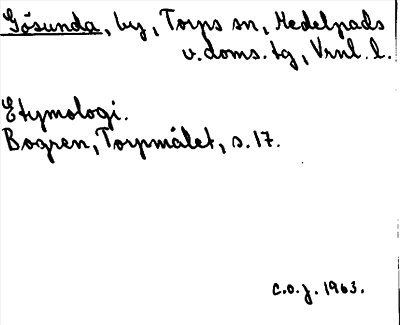 Gösunda, by, Torps sn, Medelpads
v. doms. tg, Vrnl. l.
Etymologi.
Bogren, Torpmålet, s. 17.
C.O.J. 1963.